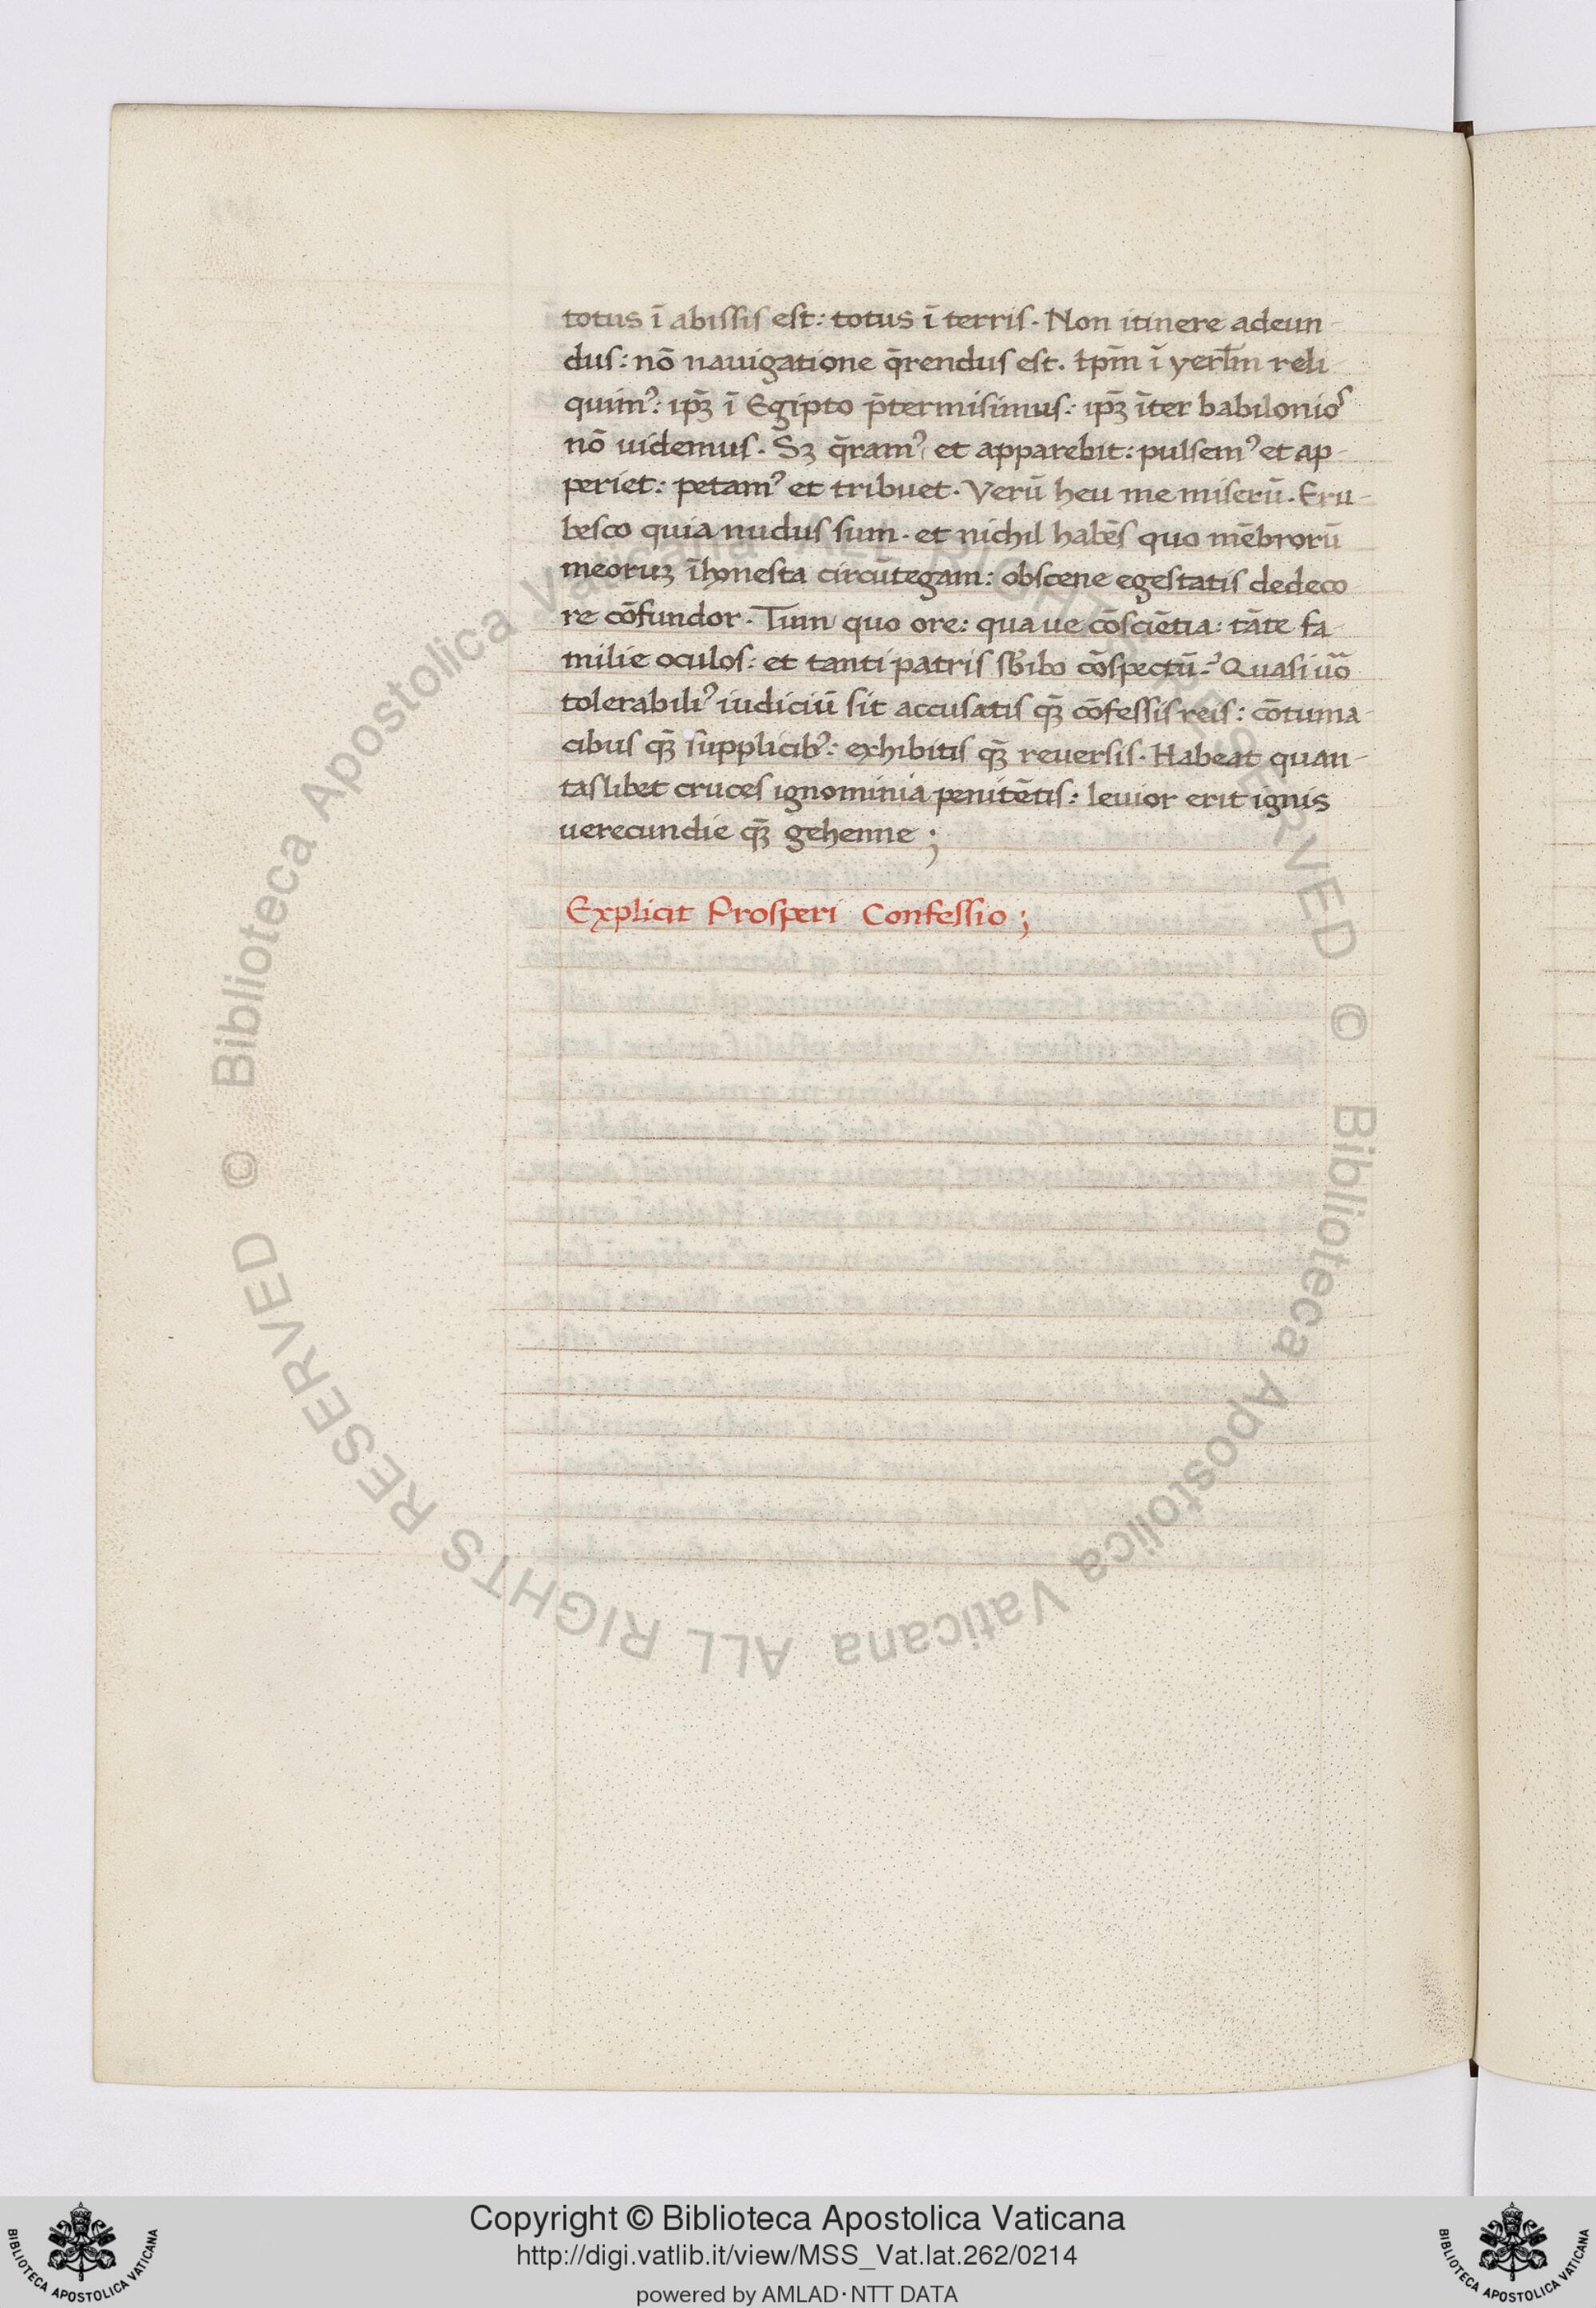 totus ī abissis est: totus ī terris. Non itinere adeun-
dus: nō nauigatione q̄rendus est. Ip̄m ī yerl̄m reli-
quimꝰ: ip̄ꝫ ī Egipto p̄termisimus: ip̄ꝫ īter babilonioˢ
nō uidemus. Sꝫ q̄ramꝰ et apparebit: pulsemꝰ et ap-
periet: petamꝰ et tribuet. Verū heu me miserū. Eru-
besco quia nudus sum. et nichil habēs quo mēbrorū
meoruꝫ īhonesta circūtegam: obscene egestatis dedeco
re cōfundor. Tum quo ore: qua ue cōsciētia: tāte fa-
milie oculos: et tanti patris sb̄ibo cōspectū? Quasi ūo
tolerabiliꝰ iudiciū sit accusatis qꝫ̄ cōfessis reis: cōtuma-
cibus qꝫ̄ supplicibꝰ: exhibitis qꝫ̄ reuersis. Habeat quan-
taslibet cruces ignominia penitētis: leuior erit ignis
uerecundie qꝫ̄ gehenne;
Explicit Prosperi Confessio;
© Biblioteca Apostolica Vaticana ALL RIGHTS RESERVED © Biblioteca Apostolica Vaticana ALL RIGHTS RESERVED
Copyright © Biblioteca Apostolica Vaticana
http://digi.vatlib.it/view/MSS_Vat.lat.262/0214
powered by AMLAD·NTT DATA
BIBLIOTECA APOSTOLICA VATICANA
BIBLIOTECA APOSTOLICA VATICANA